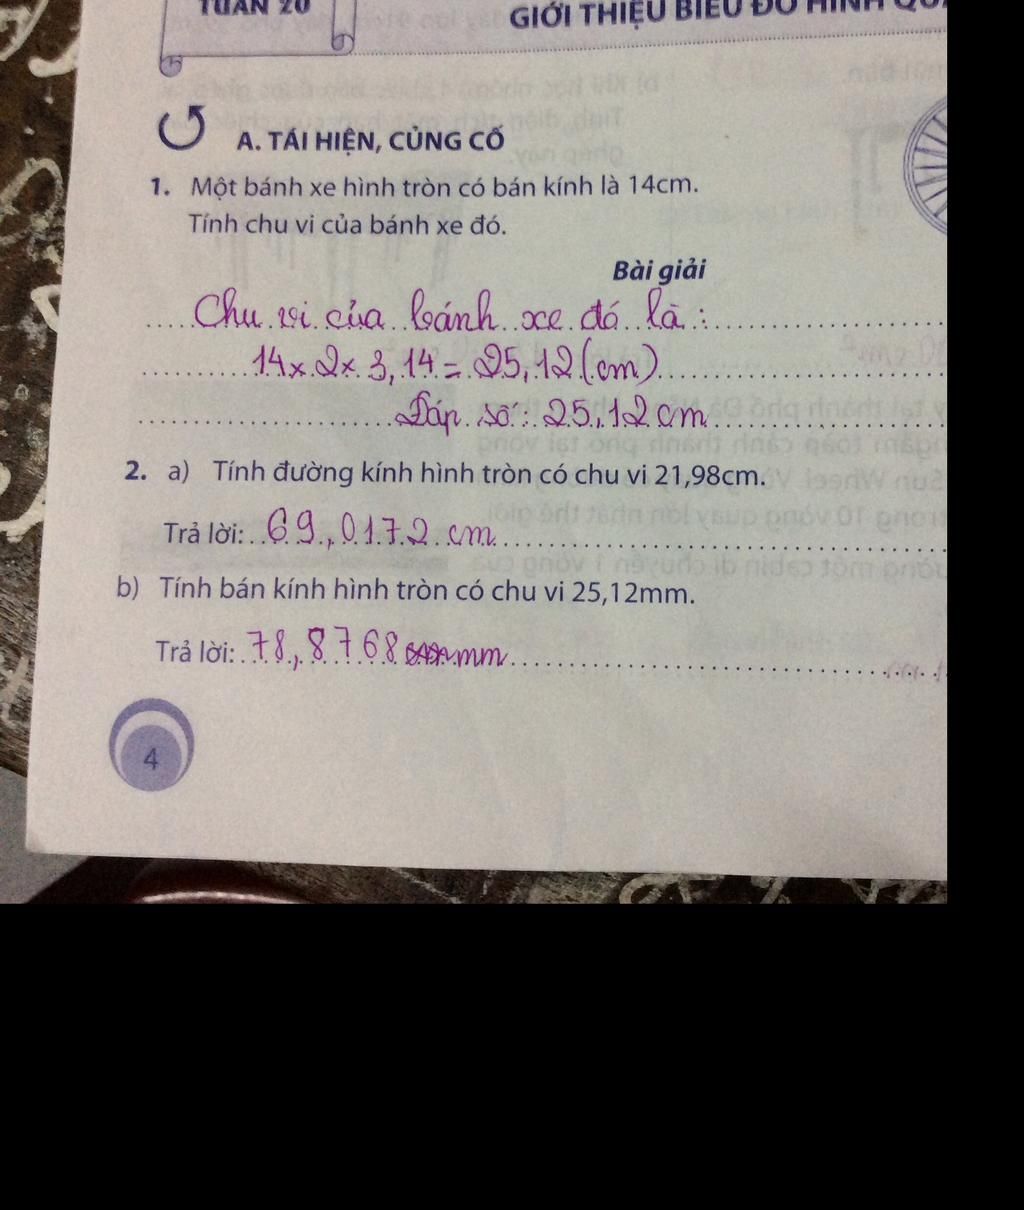 TUẦN 20
GIỚI THIỆU BIỂU ĐỒ HÌNH
A. TÁI HIỆN, CỦNG CỐ
1. Một bánh xe hình tròn có bán kính là 14cm.
Tính chu vi của bánh xe đó.
Bài giải
Chu vi của bánh xe đó là:
14 x 2 x 3,14 = 25,12 (cm)
Đáp số: 25,12 cm
2. a) Tính đường kính hình tròn có chu vi 21,98cm.
Trả lời: 69,0172 cm
b) Tính bán kính hình tròn có chu vi 25,12mm.
Trả lời: 78,8768 mm
4